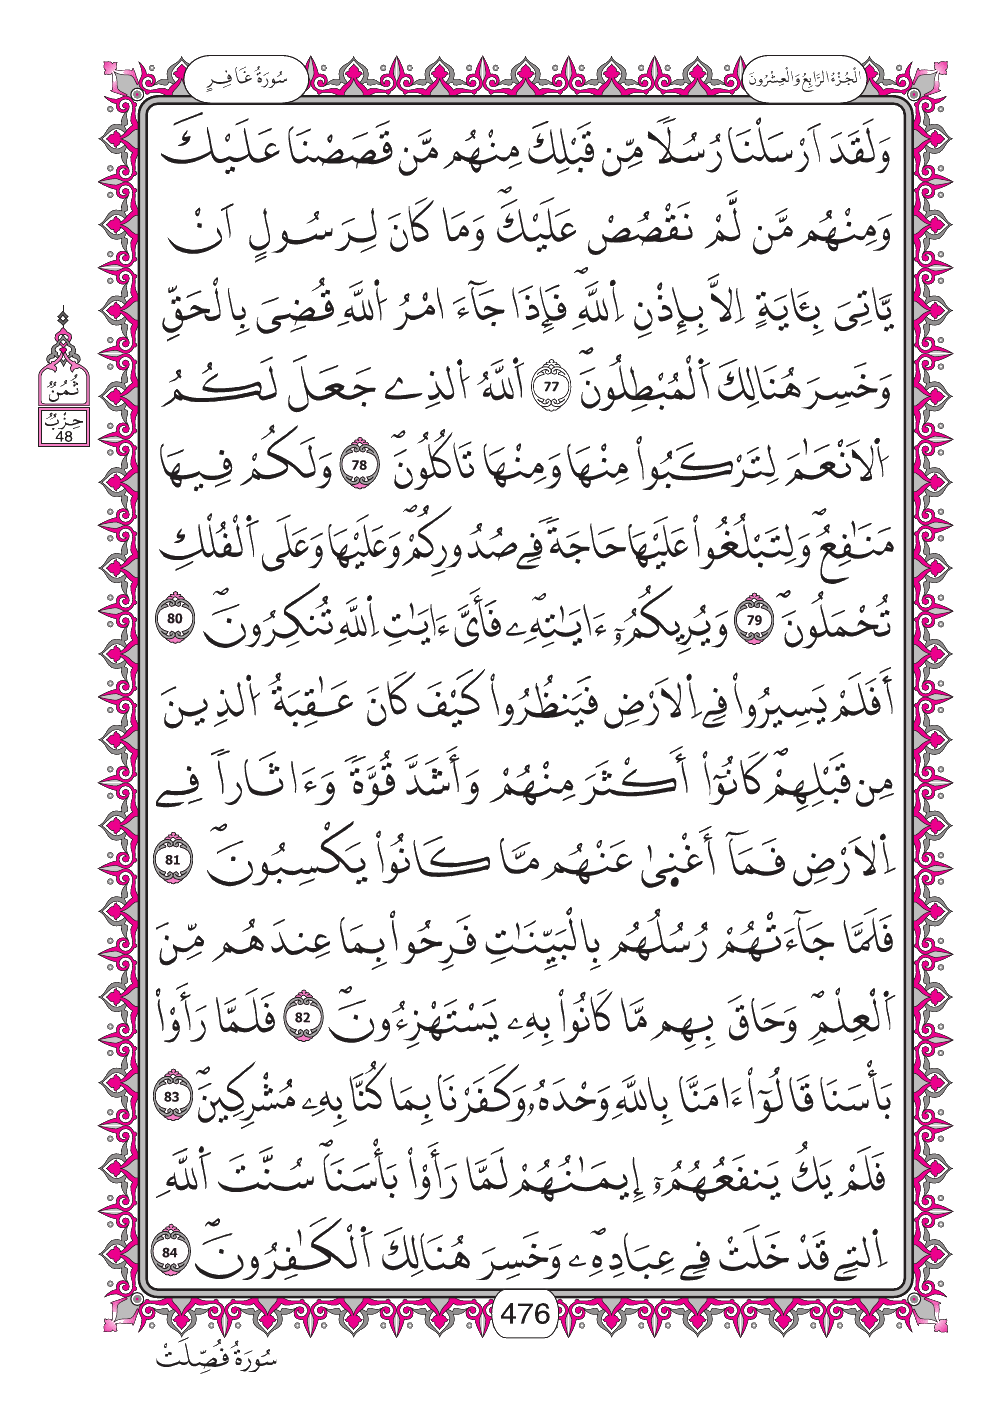 سُورَةُ غَافِرٍ
الْجُزْءُ الرَّابِعُ وَالْعِشْرُونَ
وَلَقَدَ اَرْسَلْنَا رُسُلًا مِّن قَبْلِكَ مِنْهُم مَّن قَصَصْنَا عَلَيْكَ
وَمِنْهُم مَّن لَّمْ نَقْصُصْ عَلَيْكَۖ وَمَا كَانَ لِرَسُولٍ اَنْ
يَّاتِىَ بِـَٔايَةٍ اِلَّا بِإِذْنِ اِ۬للَّهِۖ فَإِذَا جَآءَ امْرُ اُ۬للَّهِ قُضِىَ بِالْحَقِّ
وَخَسِرَ هُنَالِكَ اَ۬لْمُبْطِلُونَۖ 77 اَ۬للَّهُ اُ۬لذِے جَعَلَ لَكُمُ
اُ۬لَانْعَٰمَ لِتَرْكَبُواْ مِنْهَا وَمِنْهَا تَاكُلُونَۖ 78 وَلَكُمْ فِيهَا
مَنَٰفِعُۖ وَلِتَبْلُغُواْ عَلَيْهَا حَاجَةً فِے صُدُورِكُمْۖ وَعَلَيْهَا وَعَلَى اَ۬لْفُلْكِ
تُحْمَلُونَۖ 79 وَيُرِيكُمُۥٓ ءَايَٰتِهِۦۖ فَأَىَّ ءَايَٰتِ اِ۬للَّهِ تُنكِرُونَۖ 80
أَفَلَمْ يَسِيرُواْ فِے اِ۬لَارْضِ فَيَنظُرُواْ كَيْفَ كَانَ عَٰقِبَةُ اُ۬لذِينَ
مِن قَبْلِهِمْۖ كَانُوٓاْ أَكْثَرَ مِنْهُمْ وَأَشَدَّ قُوَّةً وَءَاثَاراً فِے
اِ۬لَارْضِ فَمَآ أَغْنٜىٰ عَنْهُم مَّا كَانُواْ يَكْسِبُونَۖ 81
فَلَمَّا جَآءَتْهُمْ رُسُلُهُم بِالْبَيِّنَٰتِ فَرِحُواْ بِمَا عِندَهُم مِّنَ
اَ۬لْعِلْمِۖ وَحَاقَ بِهِم مَّا كَانُواْ بِهِۦ يَسْتَهْزِءُونَۖ 82 فَلَمَّا رَأَوْاْ
بَأْسَنَا قَالُوٓاْ ءَامَنَّا بِاللَّهِ وَحْدَهُۥ وَكَفَرْنَا بِمَا كُنَّا بِهِۦ مُشْرِكِينَۖ 83
فَلَمْ يَكُ يَنفَعُهُمُۥٓ إِيمَٰنُهُمْ لَمَّا رَأَوْاْ بَأْسَنَاۖ سُنَّتَ اَ۬للَّهِ
اِ۬لتِے قَدْ خَلَتْ فِے عِبَادِهِۦۖ وَخَسِرَ هُنَالِكَ اَ۬لْكَٰفِرُونَۖ 84
ثُمُنٌ
حِزْبٌ
48
476
سُورَةُ فُصِّلَتْ